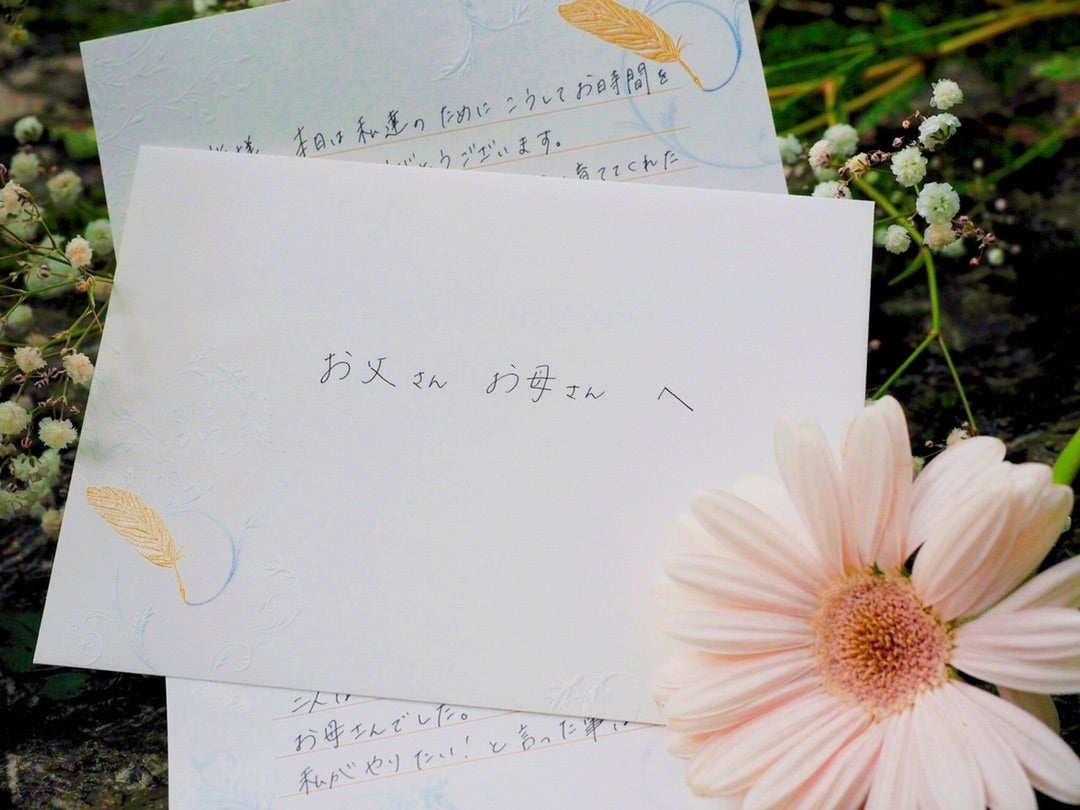 皆様 本日は私達のためにこうしてお日時間を
がとうございます。
育ててくれた
お父さん お母さん へ
お母さんでした。
私がやりたい！と言った事は